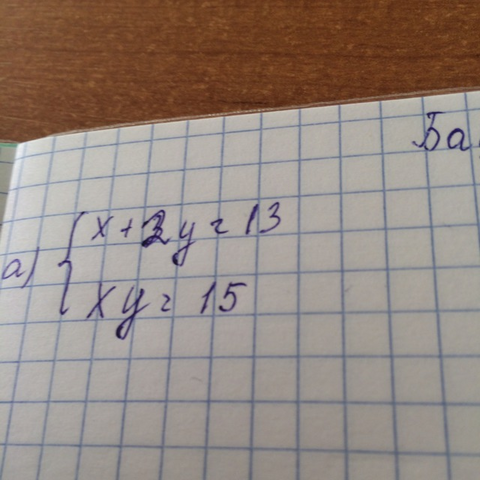 Ба
а) { x + 2y = 13
xy = 15